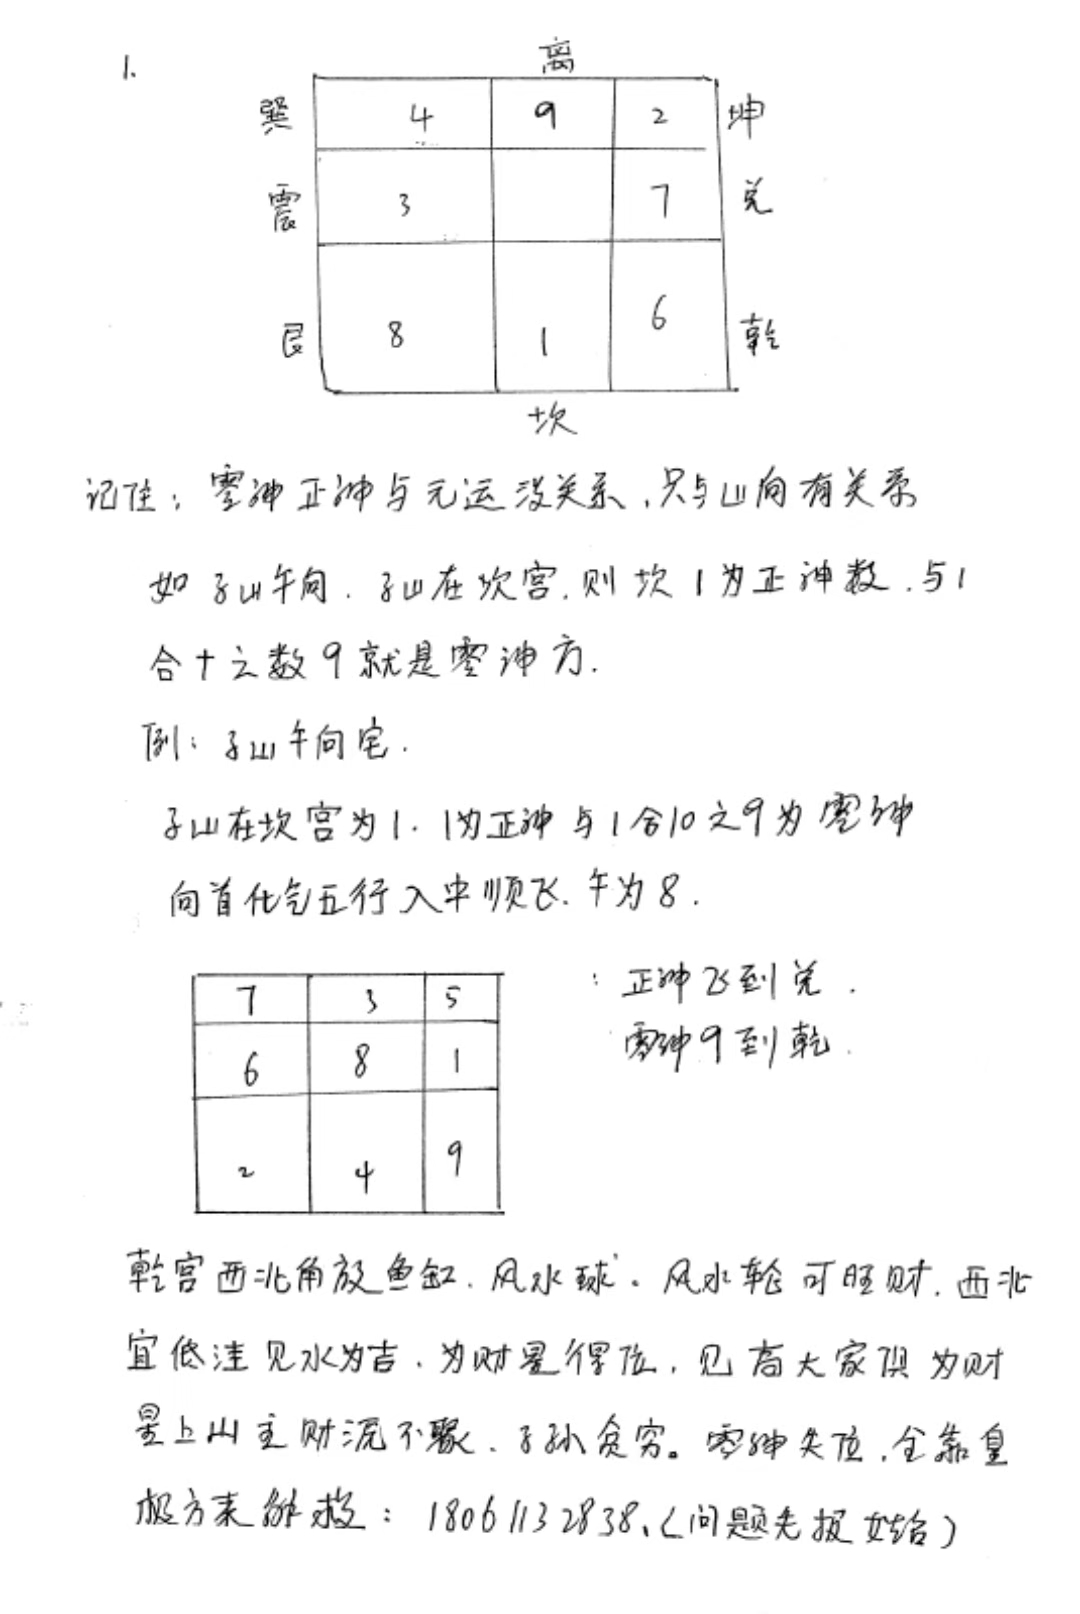 1.
离
巽 4 9 2 坤
震 3 7 兑
艮 8 1 6 乾
坎
记住：零神正神与元运没关系，只与山向有关系
如子山午向．子山在坎宫．则坎1为正神数．与1
合十之数9就是零神方．
例：子山午向宅．
子山在坎宫为1．1为正神与1合10之9为零神
向首化气五行入中顺飞．午为8．
7 3 5
6 8 1
2 4 9
：正神飞到兑．
零神9到乾．
乾宫西北角放鱼缸．风水球。风水轮可旺财．西北
宜低洼见水为吉．为财星得位．见高大家俱为财
星上山主财流不聚、子孙贫穷。零神失位．全靠皇
极方来解救：18061132838、（问题先报姓名）